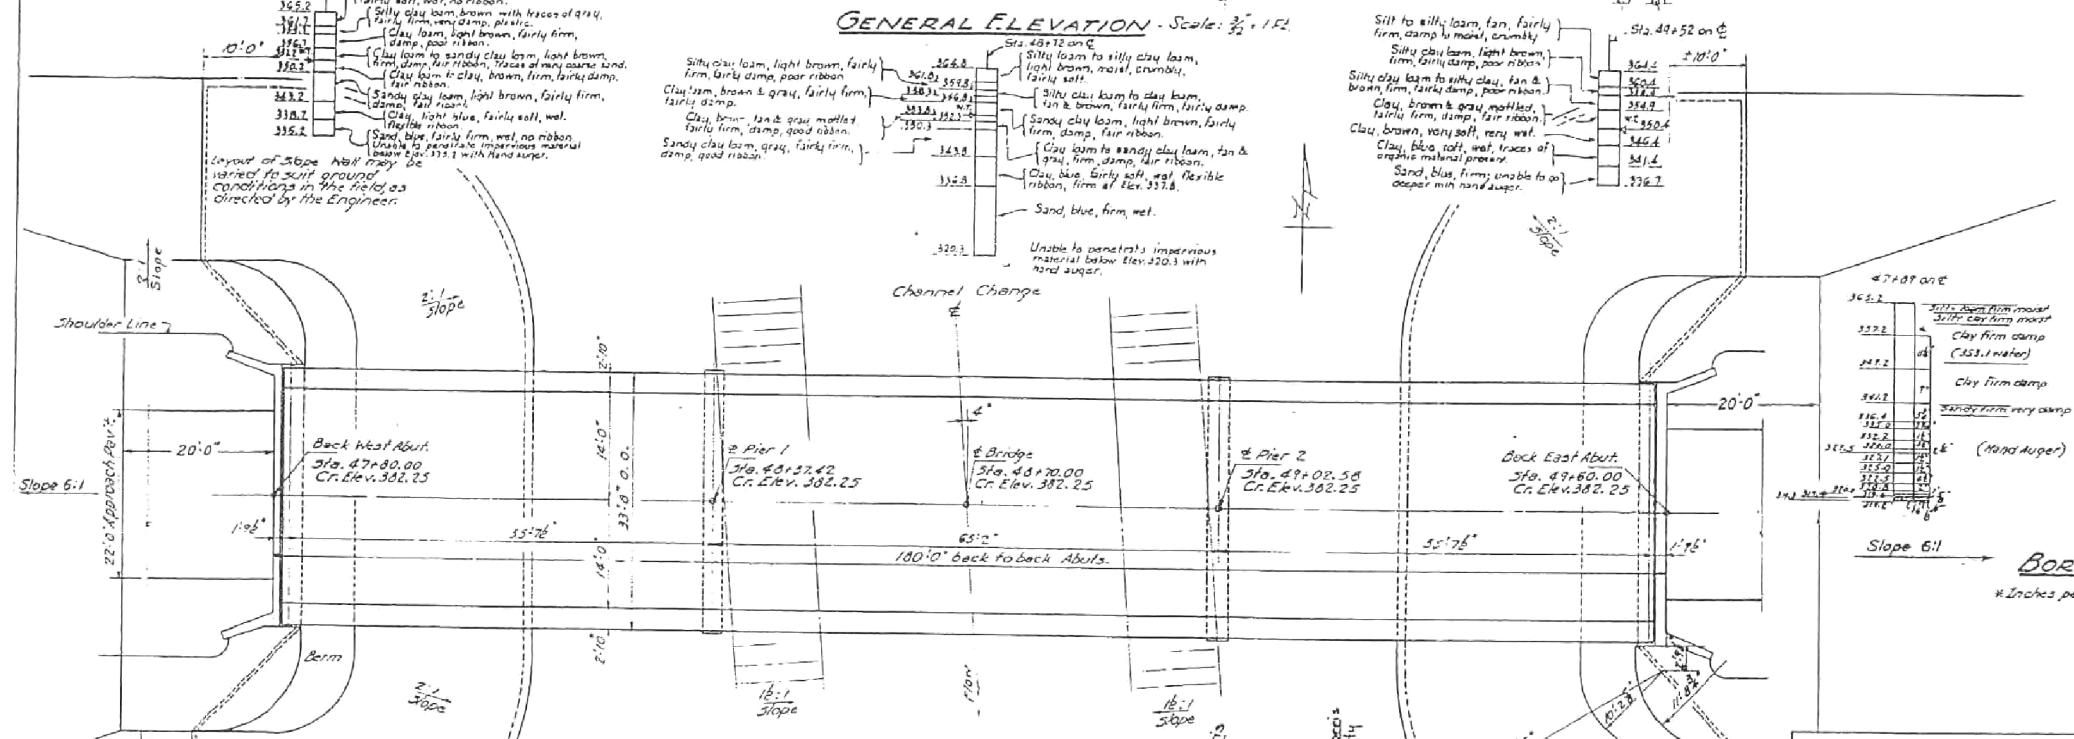 GENERAL ELEVATION - Scale: 3/32" = 1 Ft.
365.2
Silty clay loam, brown with traces of gray,
fairly firm, very damp, plastic.
Clay loam, light brown, fairly firm,
damp, poor ribbon.
Clay loam to sandy clay loam, light brown,
firm, damp, fair ribbon. Traces of very coarse sand.
Clay loam to clay, brown, firm, fairly damp,
fair ribbon.
Sandy clay loam, light brown, fairly firm,
damp, fair ribbon.
Clay, light blue, fairly soft, wet,
flexible ribbon.
Sand, blue, fairly firm, wet, no ribbon.
Unable to penetrate impervious material
below Elev. 335.2 with hand auger.
10'-0"
350.2
343.2
338.7
335.2
Layout of Slope Wall may be
varied to suit ground
conditions in the field, as
directed by the Engineer.
Sta. 48+72 on ℄
Silty clay loam, light brown, fairly
firm, fairly damp, poor ribbon
Clay loam, brown & gray, fairly firm,
fairly damp.
Clay, brown, tan & gray mottled
fairly firm, damp, good ribbon.
Sandy clay loam, gray, fairly firm,
damp, good ribbon.
364.8
361.8
359.8
358.3
356.8
W.T.
353.8
352.3
350.3
343.8
336.8
320.3
Silty loam to silty clay loam,
light brown, moist, crumbly,
fairly soft.
Silty clay loam to clay loam,
tan & brown, fairly firm, fairly damp.
Sandy clay loam, light brown, fairly
firm, damp, fair ribbon.
Clay loam to sandy clay loam, tan &
gray, firm, damp, fair ribbon.
Clay, blue, fairly soft, wet, flexible
ribbon, firm at Elev. 337.8.
Sand, blue, firm, wet.
Unable to penetrate impervious
material below Elev. 320.3 with
hand auger.
Sta. 49+52 on ℄
Silt to silty loam, tan, fairly
firm, damp to moist, crumbly
Silty clay loam, light brown,
firm, fairly damp, poor ribbon
Silty clay loam to silty clay, tan &
brown, firm, fairly damp, poor ribbon.
Clay, brown & gray mottled,
fairly firm, damp, fair ribbon.
Clay, brown, very soft, very wet.
Clay, blue, soft, wet, traces of
organic material present.
Sand, blue, firm; unable to go
deeper with hand auger.
364.4
360.4
358.4
354.9
W.T.
350.4
346.4
341.4
336.7
±10'-0"
2:1
Slope
2:1
Slope
2:1
Slope
Shoulder Line
Channel Change
℄
47+89 on ℄
365.2
Silty loam firm moist
Silty clay firm moist
357.2
Clay firm damp
(353.1 water)
347.2
Clay firm damp
341.2
Sandy firm very damp
336.4
(Hand Auger)
2'-10"
14'-0"
33'-8" O.O.
14'-0"
2'-10"
4°
22'-0" Approach Pav't.
20'-0"
20'-0"
Back West Abut.
Sta. 47+80.00
Cr. Elev. 382.25
℄ Pier 1
Sta. 48+37.42
Cr. Elev. 382.25
℄ Bridge
Sta. 48+70.00
Cr. Elev. 382.25
℄ Pier 2
Sta. 49+02.58
Cr. Elev. 382.25
Back East Abut.
Sta. 49+60.00
Cr. Elev. 382.25
Slope 6:1
1'-9½"
55'-7½"
65'-2"
55'-7½"
1'-9½"
180'-0" back to back Abuts.
Slope 6:1
BOR
* Inches pe
Berm
2:1
Slope
1½:1
Slope
Flow
1½:1
Slope